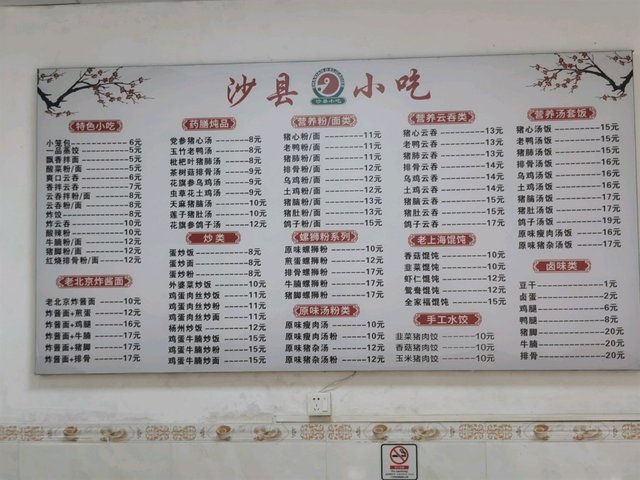 沙县小吃
沙县小吃
特色小吃
小笼包------6元
一品蒸饺------5元
飘香拌面------5元
酸菜粉/面------5元
爽口云吞------6元
香拌云吞------7元
云吞粉/面------8元
云吞粉/面------8元
炸饺------8元
炸云吞------10元
酸辣粉------10元
牛腩粉/面------12元
猪脚粉/面------12元
红烧排骨粉------12元
老北京炸酱面
老北京炸酱面------10元
炸酱面+煎蛋------12元
炸酱面+鸡腿------16元
炸酱面+牛腩------17元
炸酱面+猪脚------17元
炸酱面+排骨------17元
药膳炖品
党参猪心汤------8元
玉竹老鸭汤------8元
枇杷叶猪肺汤------8元
茶树菇排骨汤------9元
花旗参乌鸡汤------9元
虫草花土鸡汤------9元
天麻猪脑汤------10元
莲子猪肚汤------10元
花旗参鸽子汤------12元
炒类
蛋炒饭------8元
蛋炒面------8元
蛋炒粉------8元
外婆菜炒饭------10元
鸡蛋肉丝炒饭------11元
鸡蛋肉丝炒粉------11元
鸡蛋肉丝炒面------11元
杨州炒饭------12元
鸡蛋牛腩炒饭------15元
鸡蛋牛腩炒粉------15元
鸡蛋牛腩炒面------15元
营养粉/面类
猪心粉/面------11元
老鸭粉/面------11元
猪肺粉/面------11元
排骨粉/面------12元
乌鸡粉/面------12元
土鸡粉/面------12元
猪脑粉/面------13元
猪肚粉/面------13元
鸽子粉/面------15元
螺狮粉系列
原味螺狮粉------10元
煎蛋螺狮粉------12元
排骨螺狮粉------17元
牛腩螺狮粉------17元
猪脚螺狮粉------17元
原味汤粉类
原味瘦肉汤------10元
原味瘦肉粉------10元
原味猪杂汤------12元
原味猪杂汤粉------12元
营养云吞类
猪心云吞------13元
老鸭云吞------13元
猪肺云吞------13元
排骨云吞------14元
乌鸡云吞------14元
土鸡云吞------14元
猪脑云吞------15元
猪肚云吞------15元
鸽子云吞------17元
老上海馄饨
香菇馄饨------10元
韭菜馄饨------10元
虾仁馄饨------12元
鸳鸯馄饨------12元
全家福馄饨------15元
手工水饺
韭菜猪肉饺------10元
香菇猪肉饺------10元
玉米猪肉饺------10元
营养汤套饭
猪心汤饭------15元
老鸭汤饭------15元
猪肺汤饭------15元
排骨汤饭------16元
乌鸡汤饭------16元
土鸡汤饭------16元
猪脑汤饭------17元
猪肚汤饭------17元
鸽子汤饭------19元
原味瘦肉汤饭------16元
原味猪杂汤饭------17元
卤味类
豆干------1元
卤蛋------2元
鸡腿------6元
鸭腿------8元
猪脚------20元
牛腩------20元
排骨------20元